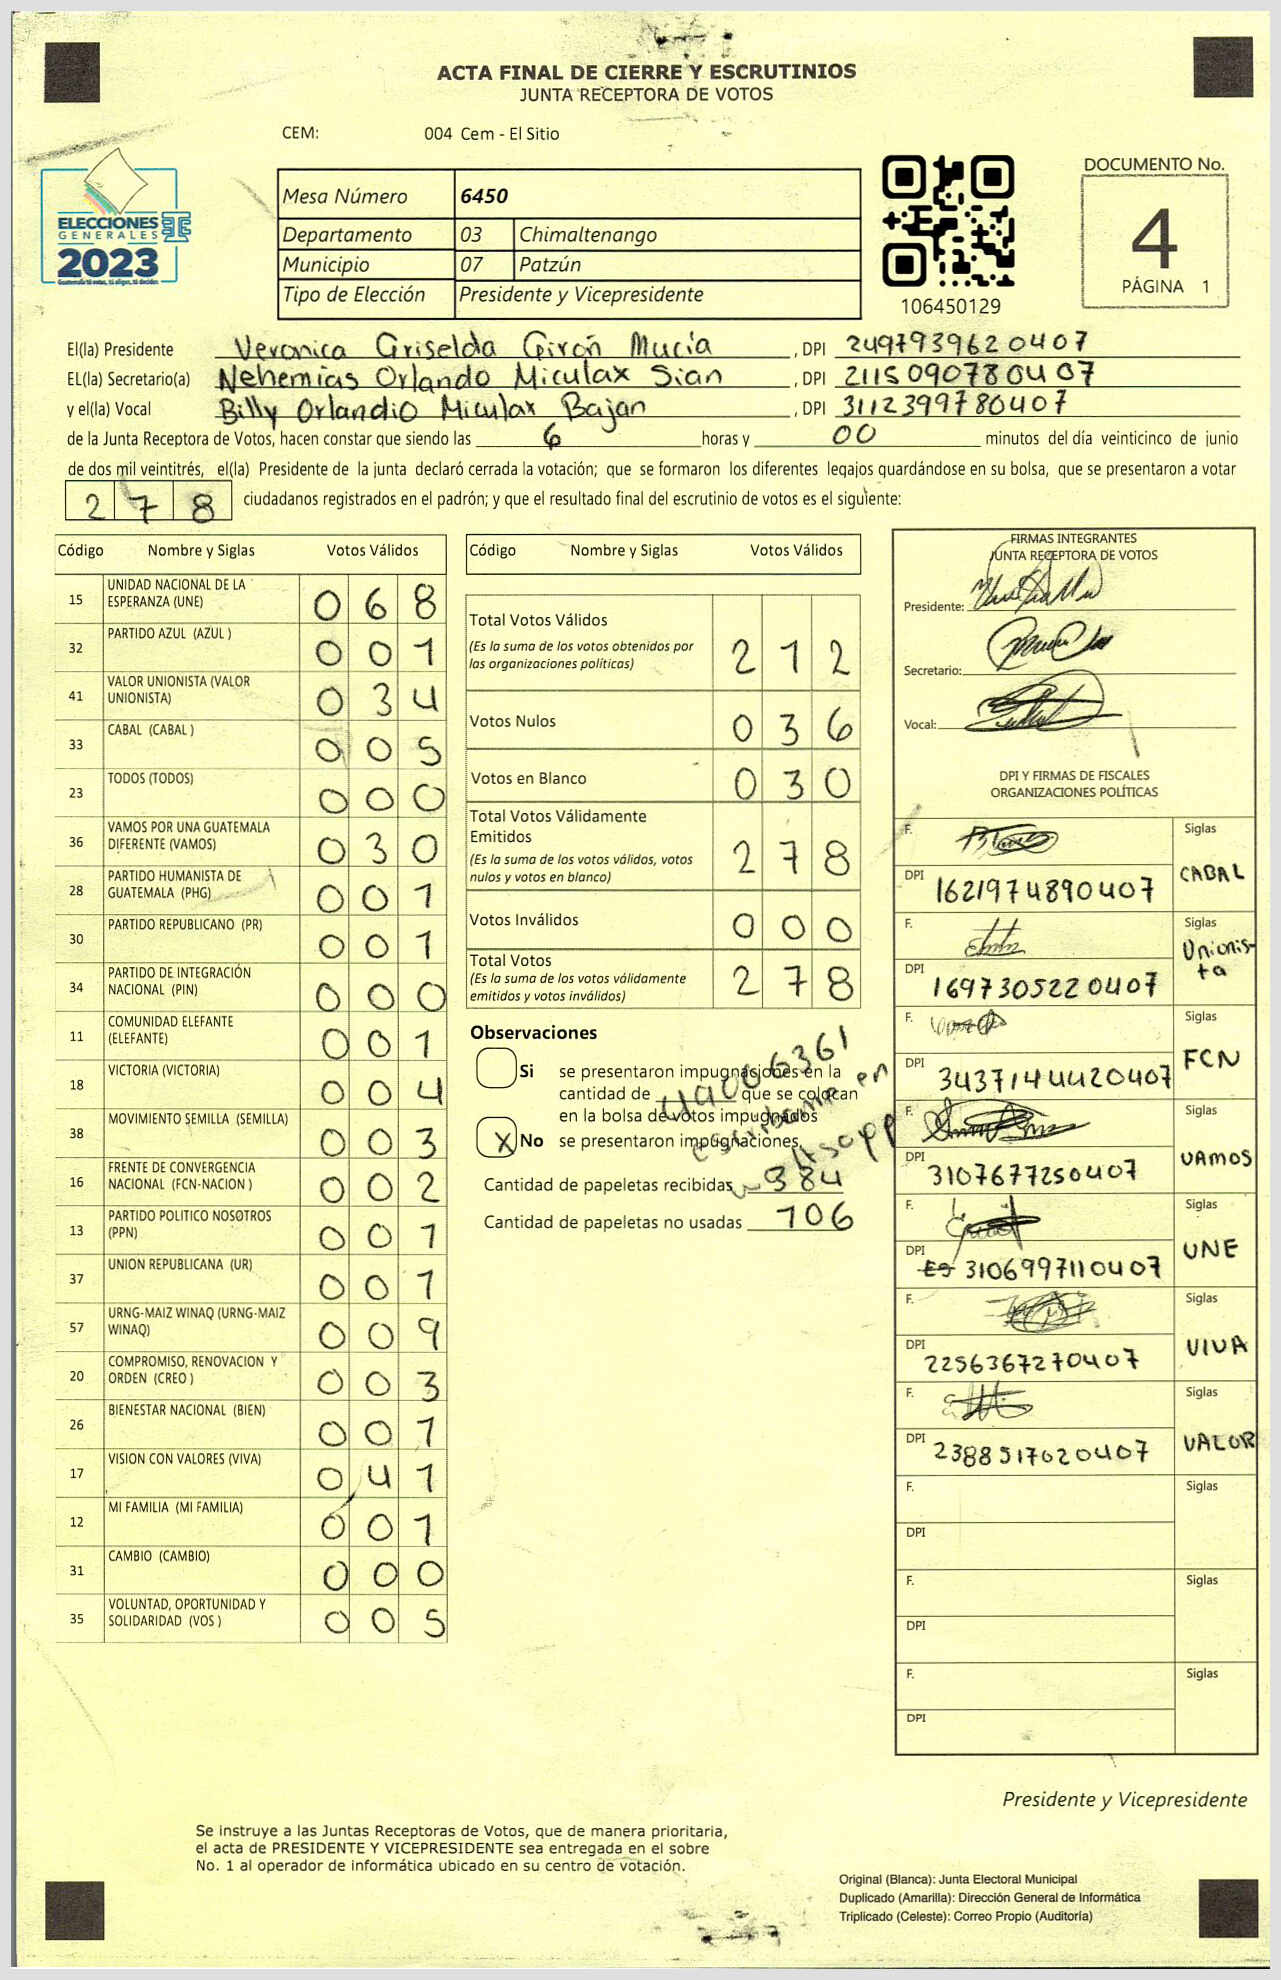 ACTA FINAL DE CIERRE Y ESCRUTINIOS
JUNTA RECEPTORA DE VOTOS
CEM: 004 Cem - El Sitio
ELECCIONES
GENERALES
2023
Guatemala tú votas, tú eliges, tú decides
Mesa Número 6450
Departamento 03 Chimaltenango
Municipio 07 Patzún
Tipo de Elección Presidente y Vicepresidente
106450129
DOCUMENTO No.
4
PÁGINA 1
El(la) Presidente Veronica Griselda Girón Mucía , DPI 2497939620407
EL(la) Secretario(a) Nehemías Orlando Miculax Sian , DPI 2115090780407
y el(la) Vocal Billy Orlandio Miculax Bajan , DPI 3112399780407
de la Junta Receptora de Votos, hacen constar que siendo las 6 horas y 00 minutos del día veinticinco de junio
de dos mil veintitrés, el(la) Presidente de la junta declaró cerrada la votación; que se formaron los diferentes legajos quardándose en su bolsa, que se presentaron a votar
278 ciudadanos registrados en el padrón; y que el resultado final del escrutinio de votos es el siguiente:
Código Nombre y Siglas Votos Válidos
15 UNIDAD NACIONAL DE LA ESPERANZA (UNE) 068
32 PARTIDO AZUL (AZUL ) 001
41 VALOR UNIONISTA (VALOR UNIONISTA) 034
33 CABAL (CABAL ) 005
23 TODOS (TODOS) 000
36 VAMOS POR UNA GUATEMALA DIFERENTE (VAMOS) 030
28 PARTIDO HUMANISTA DE GUATEMALA (PHG) 001
30 PARTIDO REPUBLICANO (PR) 001
34 PARTIDO DE INTEGRACIÓN NACIONAL (PIN) 000
11 COMUNIDAD ELEFANTE (ELEFANTE) 001
18 VICTORIA (VICTORIA) 004
38 MOVIMIENTO SEMILLA (SEMILLA) 003
16 FRENTE DE CONVERGENCIA NACIONAL (FCN-NACION ) 002
13 PARTIDO POLITICO NOSOTROS (PPN) 001
37 UNION REPUBLICANA (UR) 001
57 URNG-MAIZ WINAQ (URNG-MAIZ WINAQ) 009
20 COMPROMISO, RENOVACION Y ORDEN (CREO ) 003
26 BIENESTAR NACIONAL (BIEN) 001
17 VISION CON VALORES (VIVA) 041
12 MI FAMILIA (MI FAMILIA) 001
31 CAMBIO (CAMBIO) 000
35 VOLUNTAD, OPORTUNIDAD Y SOLIDARIDAD (VOS ) 005
Código Nombre y Siglas Votos Válidos
Total Votos Válidos 212
(Es la suma de los votos obtenidos por las organizaciones políticas)
Votos Nulos 036
Votos en Blanco 030
Total Votos Válidamente Emitidos 278
(Es la suma de los votos válidos, votos nulos y votos en blanco)
Votos Inválidos 000
Total Votos 278
(Es la suma de los votos válidamente emitidos y votos inválidos)
Observaciones
Si se presentaron impugnaciones en la
cantidad de que se colocan
en la bolsa de votos impugnados
X No se presentaron impugnaciones,
49006361
Cantidad de papeletas recibidas 384
Cantidad de papeletas no usadas 106
FIRMAS INTEGRANTES
JUNTA RECEPTORA DE VOTOS
Presidente:
Secretario:
Vocal:
DPI Y FIRMAS DE FISCALES
ORGANIZACIONES POLÍTICAS
F. Siglas
DPI 1621974890407 CABAL
F. Siglas
DPI 1697305220407 Unionista
F. Siglas
DPI 3437144420407 FCN
F. Siglas
DPI 3107677250407 VAMOS
F. Siglas
DPI 3106997110407 UNE
F. Siglas
DPI 2256367270407 VIVA
F. Siglas
DPI 2388517020407 VALOR
F. Siglas
DPI
F. Siglas
DPI
F. Siglas
DPI
Presidente y Vicepresidente
Se instruye a las Juntas Receptoras de Votos, que de manera prioritaria,
el acta de PRESIDENTE Y VICEPRESIDENTE sea entregada en el sobre
No. 1 al operador de informática ubicado en su centro de votación.
Original (Blanca): Junta Electoral Municipal
Duplicado (Amarilla): Dirección General de Informática
Triplicado (Celeste): Correo Propio (Auditoría)